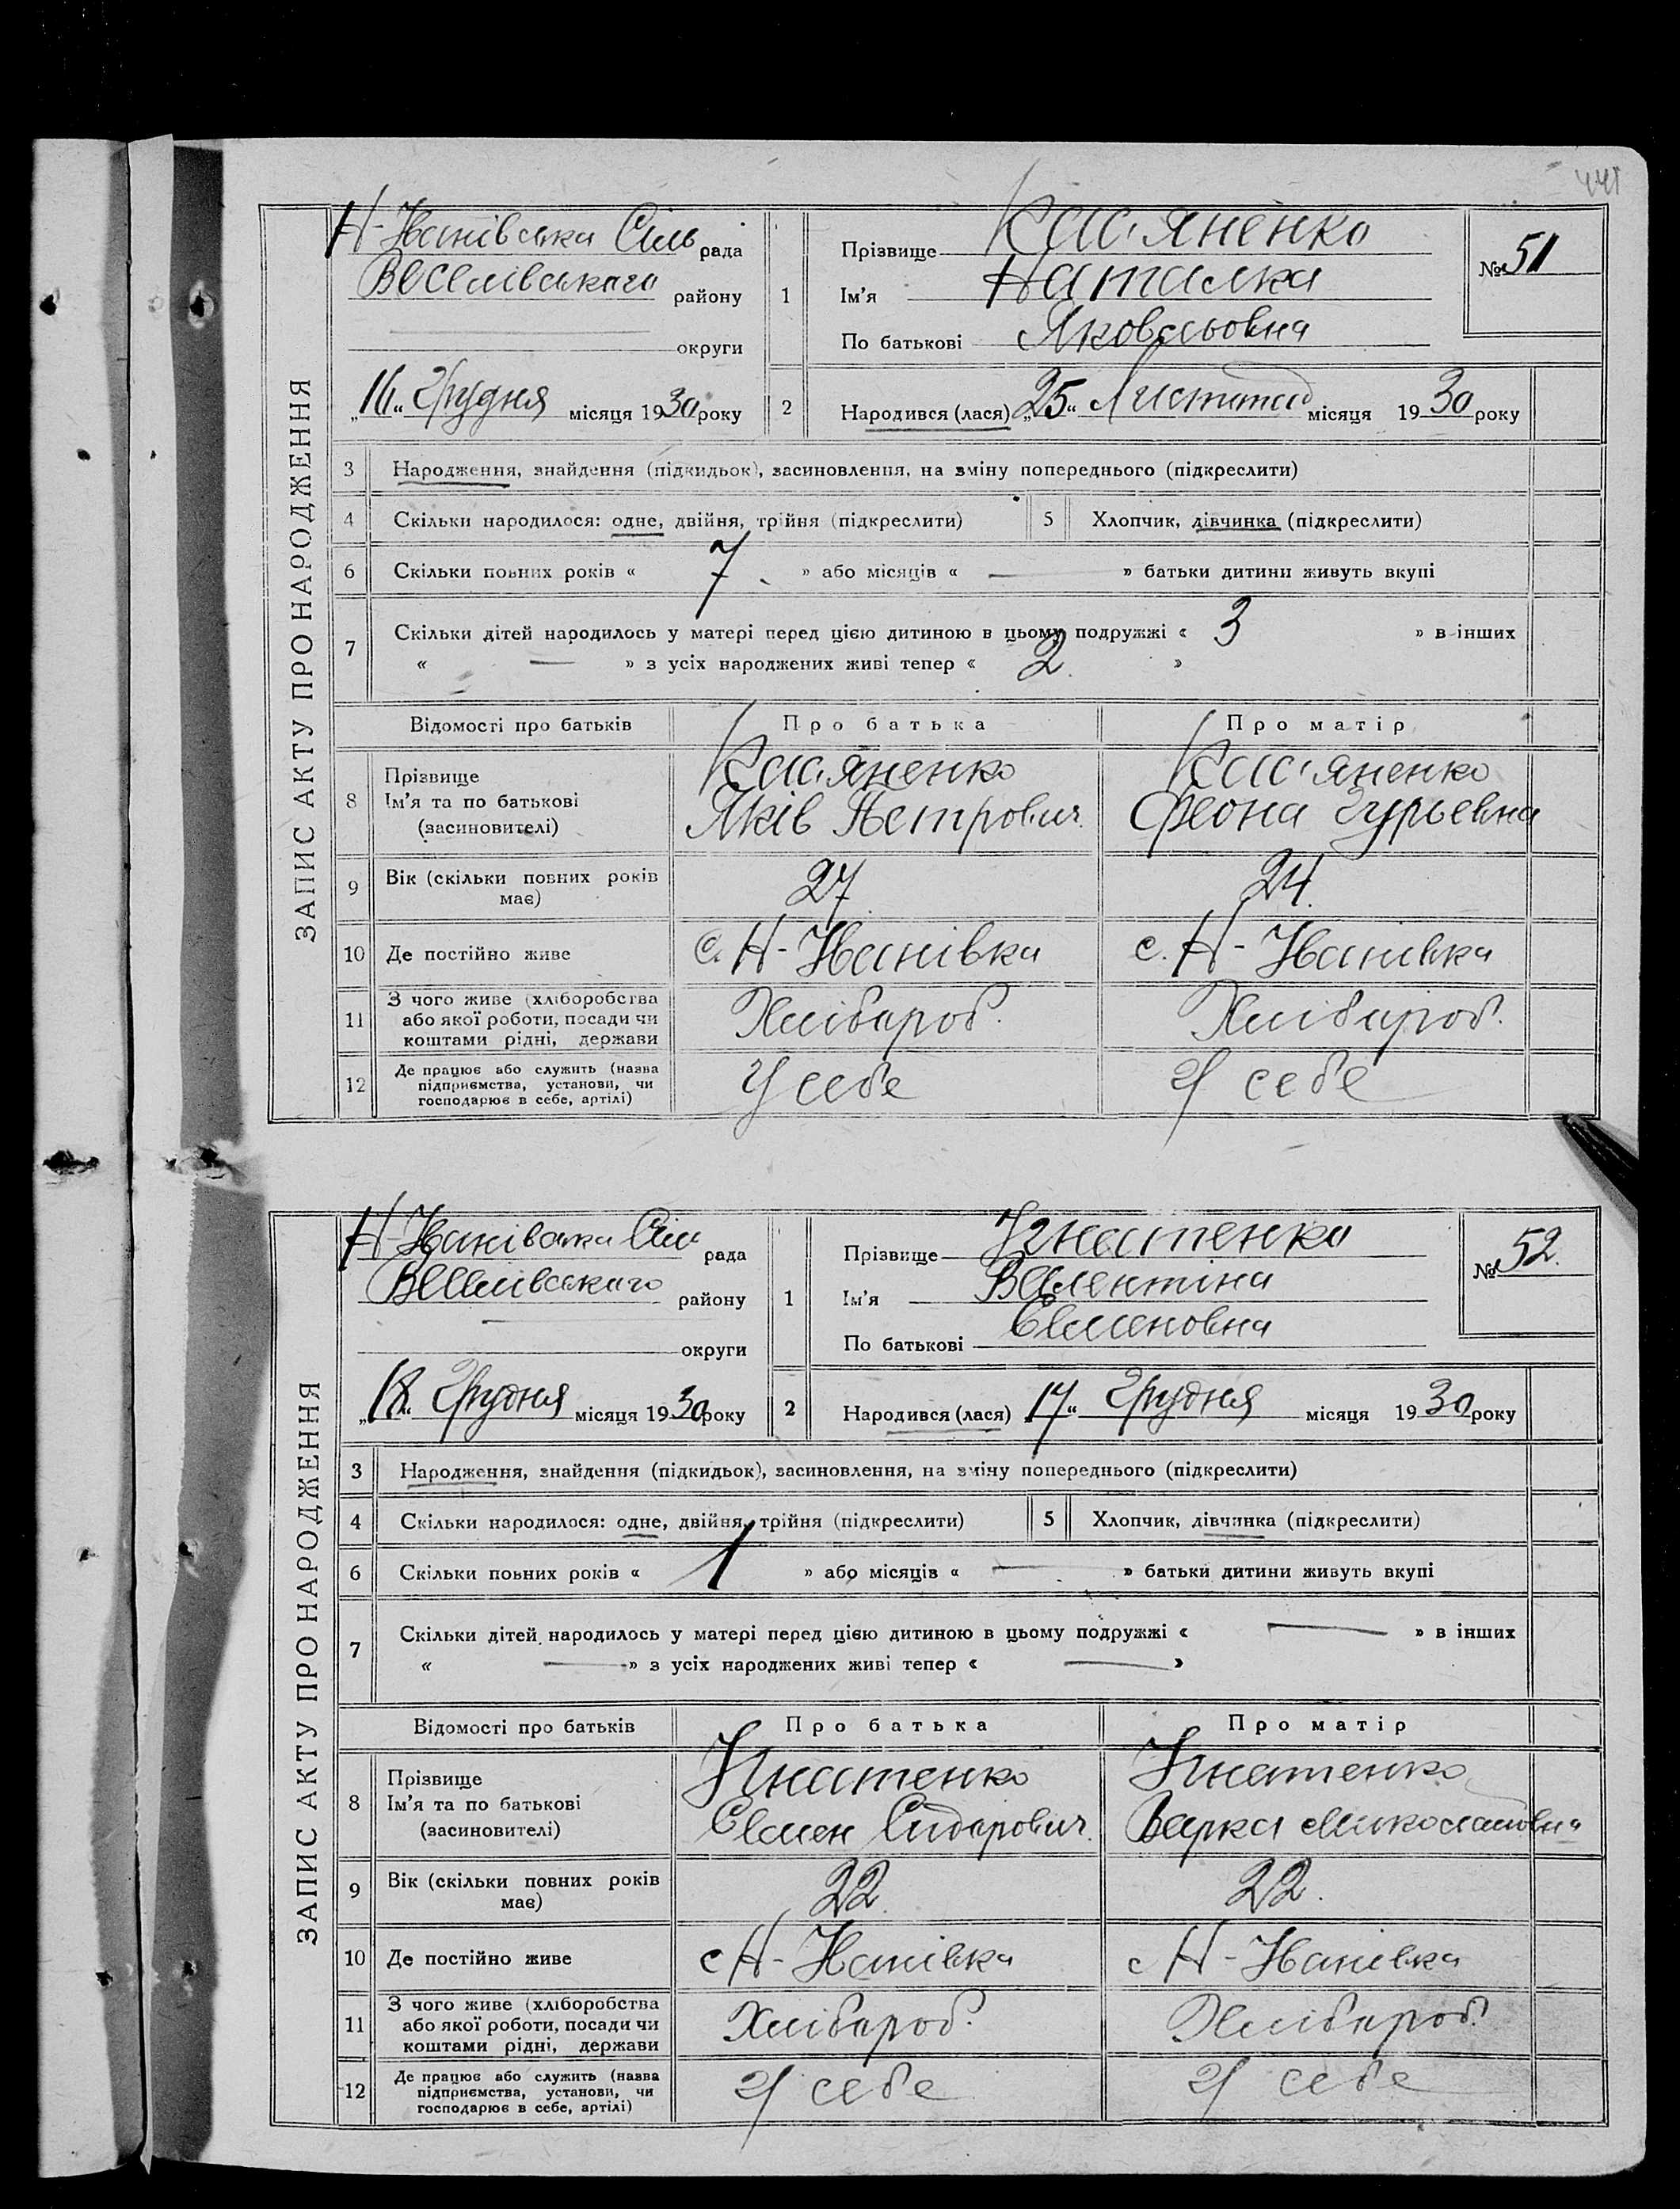 441
ЗАПИС АКТУ ПРО НАРОДЖЕННЯ
Н-Іванівська Сіль рада
Веселівського району
округи
„16“ Грудня місяця 1930 року
1
Прізвище Кас'яненко
Ім'я Наталка
По батькові Яковльовна
№ 51
2 Народився (лася) „25“ Листопад місяця 1930 року
3 Народження, знайдення (підкидьок), засиновлення, на зміну попереднього (підкреслити)
4 Скільки народилося: одне, двійня, трійня (підкреслити) 5 Хлопчик, дівчинка (підкреслити)
6 Скільки повних років « 7 » або місяців « — » батьки дитини живуть вкупі
7 Скільки дітей народилось у матері перед цією дитиною в цьому подружжі « 3 » в інших
« — » з усіх народжених живі тепер « 2 »
Відомості про батьків Про батька Про матір
8 Прізвище Кас'яненко Кас'яненко
Ім'я та по батькові Яків Петрович Феона Гурьевна
(засиновителі)
9 Вік (скільки повних років має) 27 24
10 Де постійно живе с. Н-Іванівка с. Н-Іванівка
11 З чого живе (хліборобства або якої роботи, посади чи коштами рідні, держави Хлібароб. Хлібароб.
12 Де працює або служить (назва підприємства, установи, чи господарює в себе, артілі) У себе У себе
ЗАПИС АКТУ ПРО НАРОДЖЕННЯ
Н-Іванівська Сіль рада
Веселівського району
округи
„18“ Грудня місяця 1930 року
1
Прізвище Ігнатенко
Ім'я Валентіна
По батькові Семеновна
№ 52.
2 Народився (лася) „17“ Грудня місяця 1930 року
3 Народження, знайдення (підкидьок), засиновлення, на зміну попереднього (підкреслити)
4 Скільки народилося: одне, двійня, трійня (підкреслити) 5 Хлопчик, дівчинка (підкреслити)
6 Скільки повних років « 1 » або місяців « — » батьки дитини живуть вкупі
7 Скільки дітей народилось у матері перед цією дитиною в цьому подружжі « — » в інших
« — » з усіх народжених живі тепер « — »
Відомості про батьків Про батька Про матір
8 Прізвище Ігнатенко Ігнатенко
Ім'я та по батькові Семен Сидарович Варка Миколаювна
(засиновителі)
9 Вік (скільки повних років має) 22 22.
10 Де постійно живе с Н-Іванівка с Н-Іванівка
11 З чого живе (хліборобства або якої роботи, посади чи коштами рідні, держави Хлібароб. Хлібароб.
12 Де працює або служить (назва підприємства, установи, чи господарює в себе, артілі) У себе У себе